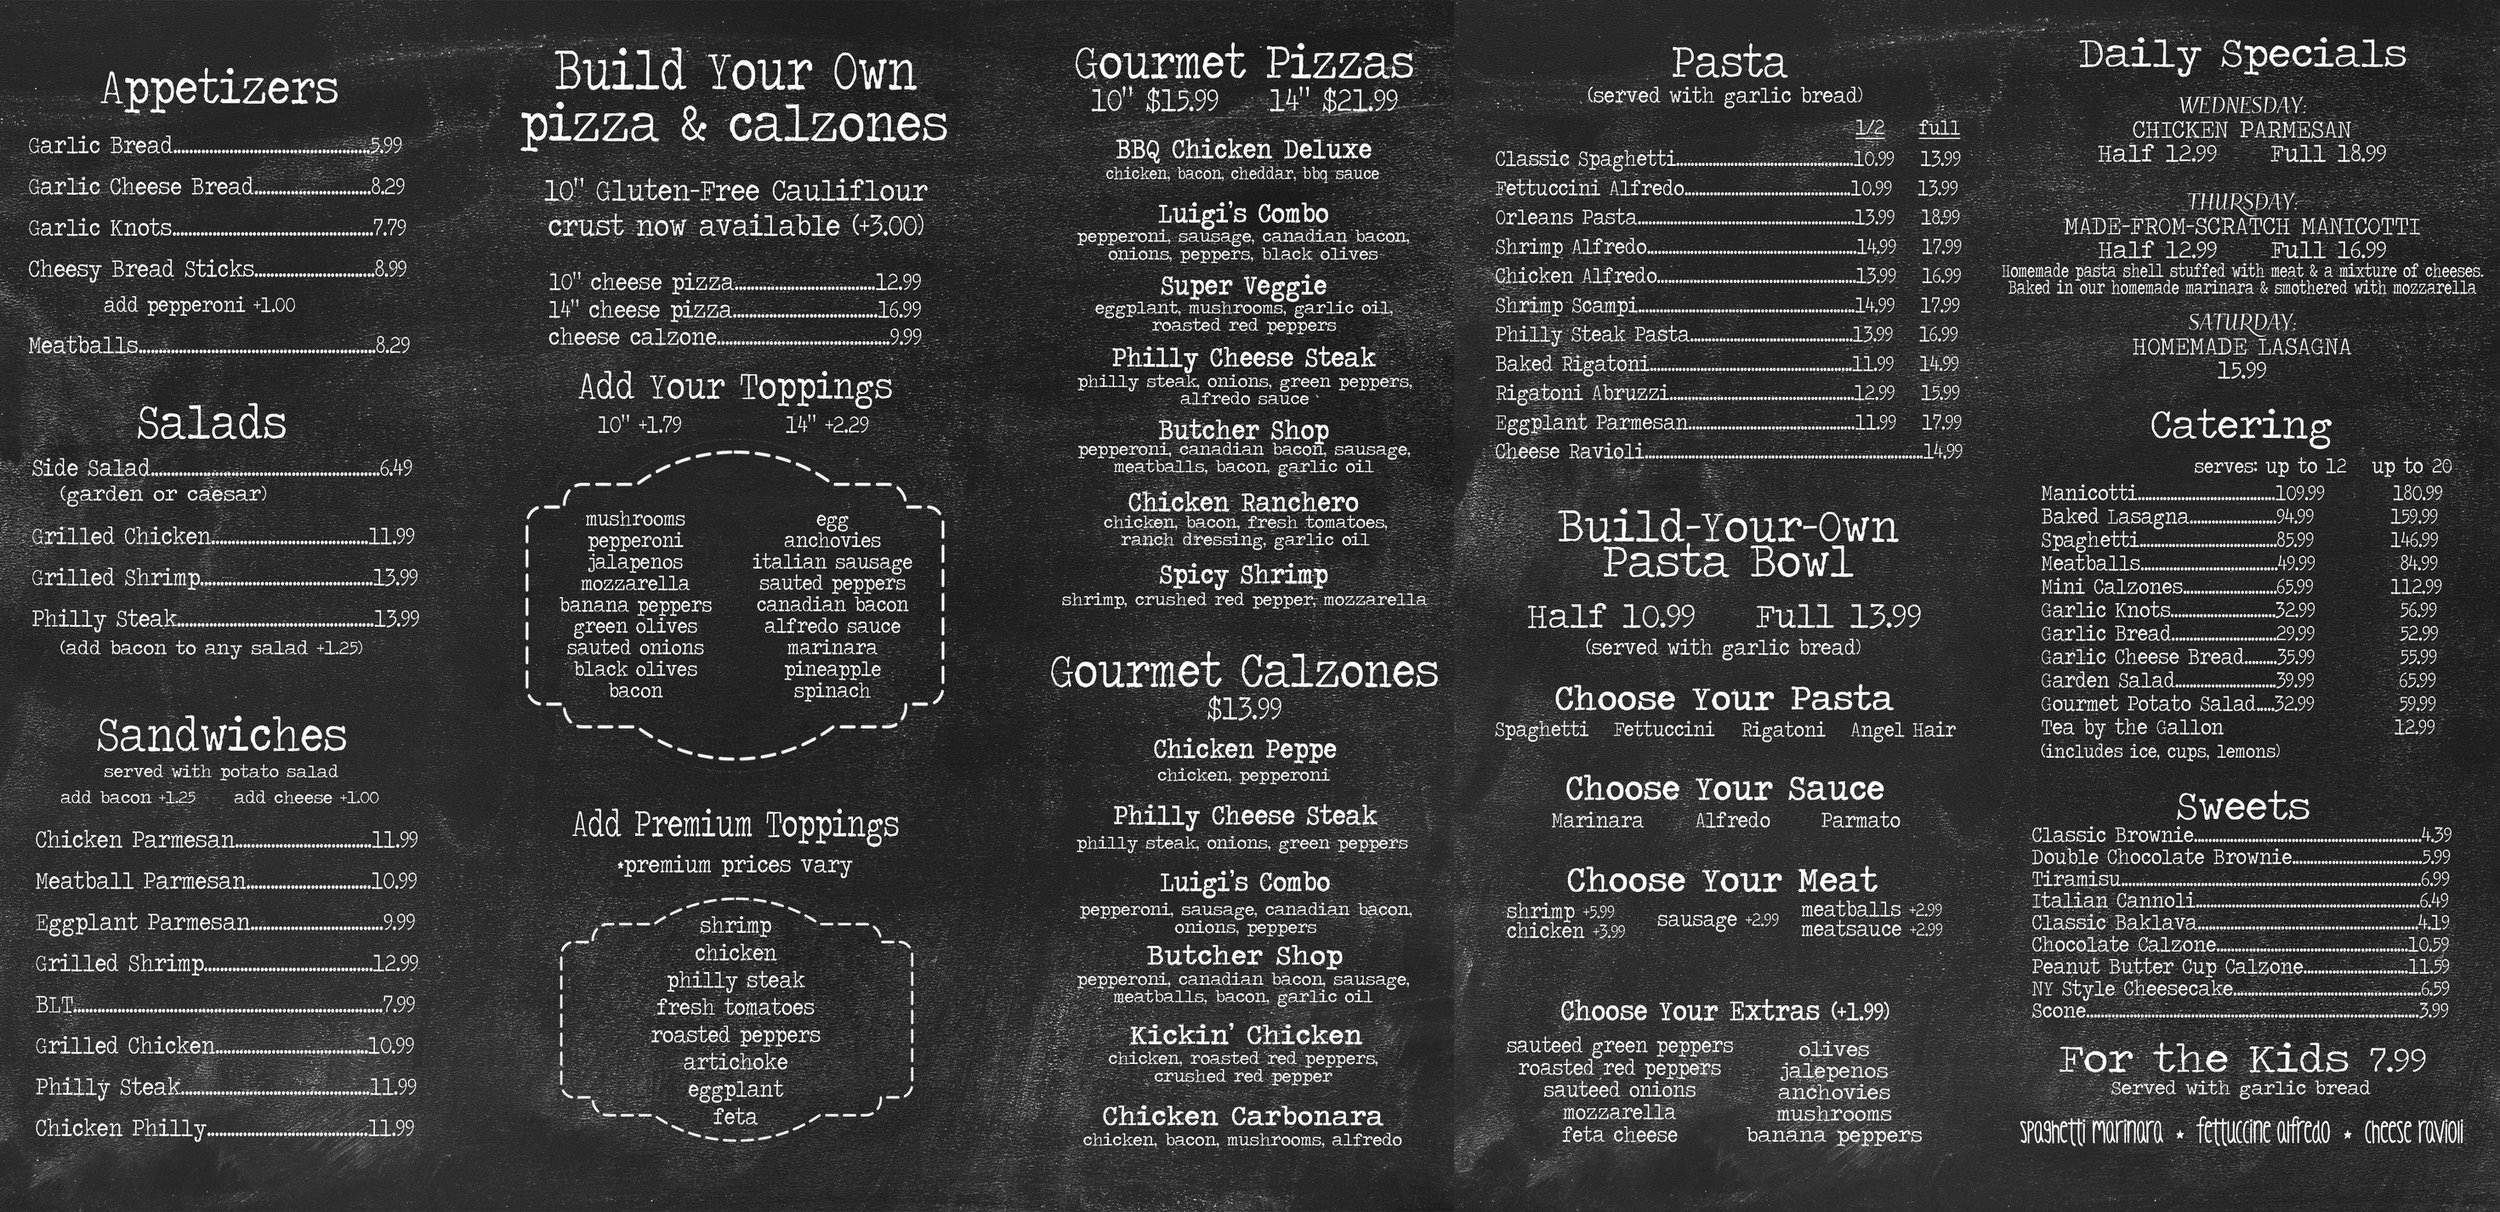 Appetizers
Garlic Bread 5.99
Garlic Cheese Bread 8.29
Garlic Knots 7.79
Cheesy Bread Sticks 8.99
add pepperoni +1.00
Meatballs 8.29
Salads
Side Salad 6.49
(garden or caesar)
Grilled Chicken 11.99
Grilled Shrimp 13.99
Philly Steak 13.99
(add bacon to any salad +1.25)
Sandwiches
served with potato salad
add bacon +1.25 add cheese +1.00
Chicken Parmesan 11.99
Meatball Parmesan 10.99
Eggplant Parmesan 9.99
Grilled Shrimp 12.99
BLT 7.99
Grilled Chicken 10.99
Philly Steak 11.99
Chicken Philly 11.99
Build Your Own
pizza & calzones
10" Gluten-Free Cauliflour
crust now available (+3.00)
10" cheese pizza 12.99
14" cheese pizza 16.99
cheese calzone 9.99
Add Your Toppings
10" +1.79 14" +2.29
mushrooms
pepperoni
jalapenos
mozzarella
banana peppers
green olives
sauted onions
black olives
bacon
egg
anchovies
italian sausage
sauted peppers
canadian bacon
alfredo sauce
marinara
pineapple
spinach
Add Premium Toppings
*premium prices vary
shrimp
chicken
philly steak
fresh tomatoes
roasted peppers
artichoke
eggplant
feta
Gourmet Pizzas
10" $15.99 14" $21.99
BBQ Chicken Deluxe
chicken, bacon, cheddar, bbq sauce
Luigi's Combo
pepperoni, sausage, canadian bacon,
onions, peppers, black olives
Super Veggie
eggplant, mushrooms, garlic oil,
roasted red peppers
Philly Cheese Steak
philly steak, onions, green peppers,
alfredo sauce
Butcher Shop
pepperoni, canadian bacon, sausage,
meatballs, bacon, garlic oil
Chicken Ranchero
chicken, bacon, fresh tomatoes,
ranch dressing, garlic oil
Spicy Shrimp
shrimp, crushed red pepper, mozzarella
Gourmet Calzones
$13.99
Chicken Peppe
chicken, pepperoni
Philly Cheese Steak
philly steak, onions, green peppers
Luigi's Combo
pepperoni, sausage, canadian bacon,
onions, peppers
Butcher Shop
pepperoni, canadian bacon, sausage,
meatballs, bacon, garlic oil
Kickin' Chicken
chicken, roasted red peppers,
crushed red pepper
Chicken Carbonara
chicken, bacon, mushrooms, alfredo
Pasta
(served with garlic bread)
1/2 full
Classic Spaghetti 10.99 13.99
Fettuccini Alfredo 10.99 13.99
Orleans Pasta 13.99 18.99
Shrimp Alfredo 14.99 17.99
Chicken Alfredo 13.99 16.99
Shrimp Scampi 14.99 17.99
Philly Steak Pasta 13.99 16.99
Baked Rigatoni 11.99 14.99
Rigatoni Abruzzi 12.99 15.99
Eggplant Parmesan 11.99 17.99
Cheese Ravioli 14.99
Build-Your-Own
Pasta Bowl
Half 10.99 Full 13.99
(served with garlic bread)
Choose Your Pasta
Spaghetti Fettuccini Rigatoni Angel Hair
Choose Your Sauce
Marinara Alfredo Parmato
Choose Your Meat
shrimp +5.99
chicken +3.99
sausage +2.99
meatballs +2.99
meatsauce +2.99
Choose Your Extras (+1.99)
sauteed green peppers
roasted red peppers
sauteed onions
mozzarella
feta cheese
olives
jalepenos
anchovies
mushrooms
banana peppers
Daily Specials
WEDNESDAY:
CHICKEN PARMESAN
Half 12.99 Full 18.99
THURSDAY:
MADE-FROM-SCRATCH MANICOTTI
Half 12.99 Full 16.99
Homemade pasta shell stuffed with meat & a mixture of cheeses.
Baked in our homemade marinara & smothered with mozzarella
SATURDAY:
HOMEMADE LASAGNA
15.99
Catering
serves: up to 12 up to 20
Manicotti 109.99 180.99
Baked Lasagna 94.99 159.99
Spaghetti 85.99 146.99
Meatballs 49.99 84.99
Mini Calzones 65.99 112.99
Garlic Knots 32.99 56.99
Garlic Bread 29.99 52.99
Garlic Cheese Bread 35.99 55.99
Garden Salad 39.99 65.99
Gourmet Potato Salad 32.99 59.99
Tea by the Gallon 12.99
(includes ice, cups, lemons)
Sweets
Classic Brownie 4.39
Double Chocolate Brownie 5.99
Tiramisu 6.99
Italian Cannoli 6.49
Classic Baklava 4.19
Chocolate Calzone 10.59
Peanut Butter Cup Calzone 11.59
NY Style Cheesecake 6.59
Scone 3.99
For the Kids 7.99
Served with garlic bread
spaghetti marinara * fettuccine alfredo * cheese ravioli